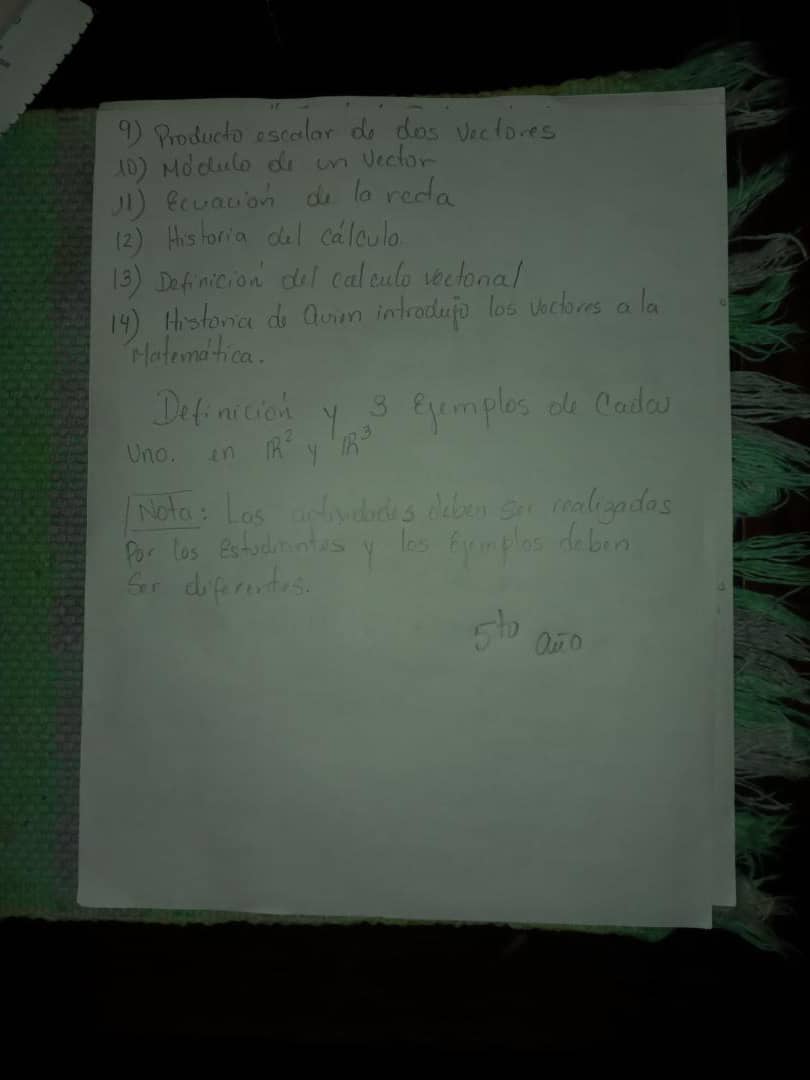 9) Producto escalar de dos Vectores
10) Módulo de un Vector
11) Ecuación de la recta
12) Historia del Cálculo.
13) Definición del calculo vectorial
14) Historia de Quien introdujo los Vectores a la
Matemática.
Definición y 3 Ejemplos de Cada
Uno. en ℝ² y ℝ³
Nota: Las actividades deben ser realizadas
Por los Estudiantes y los Ejemplos deben
Ser diferentes.
5to año